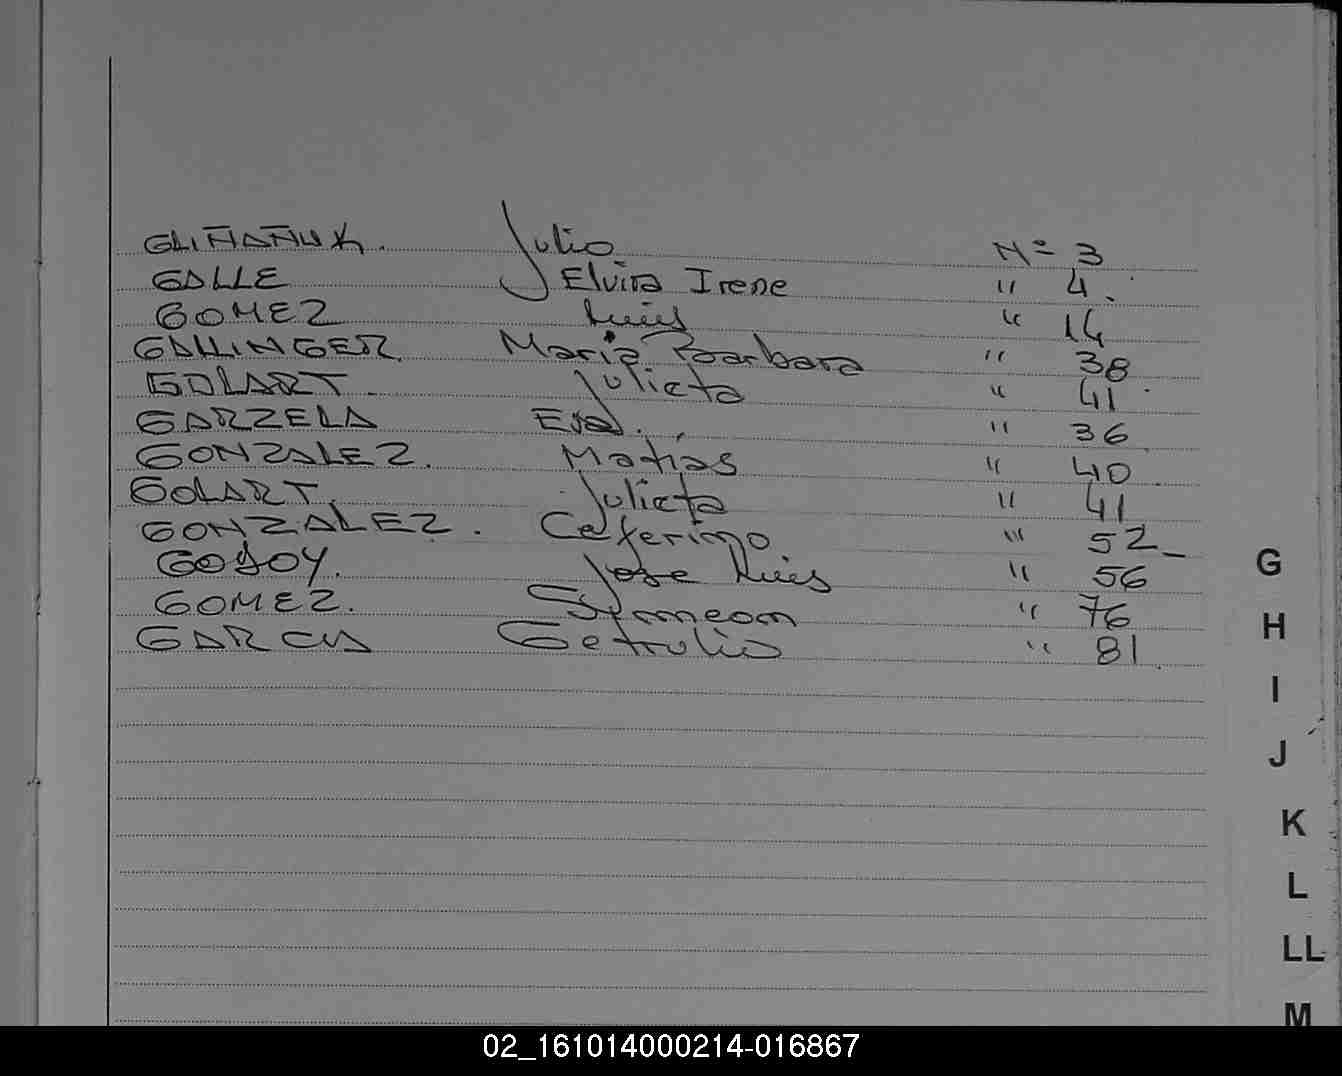 GLIÑAÑUK. Julio Nº 3
GALLE Elvira Irene " 4.
GOMEZ Luis " 14
GALLINGER. Maria Barbara " 38
GOLART. Julieta " 41
GARZELA Eva. " 36
GONZALEZ. Matias " 40
GOLART. Julieta " 41
GONZALEZ. Ceferino " 52_
GODOY. Jose Luis " 56
GOMEZ. Symeon " 76
GARCIA Getrulio " 81
G
H
I
J
K
L
LL
M
02_161014000214-016867